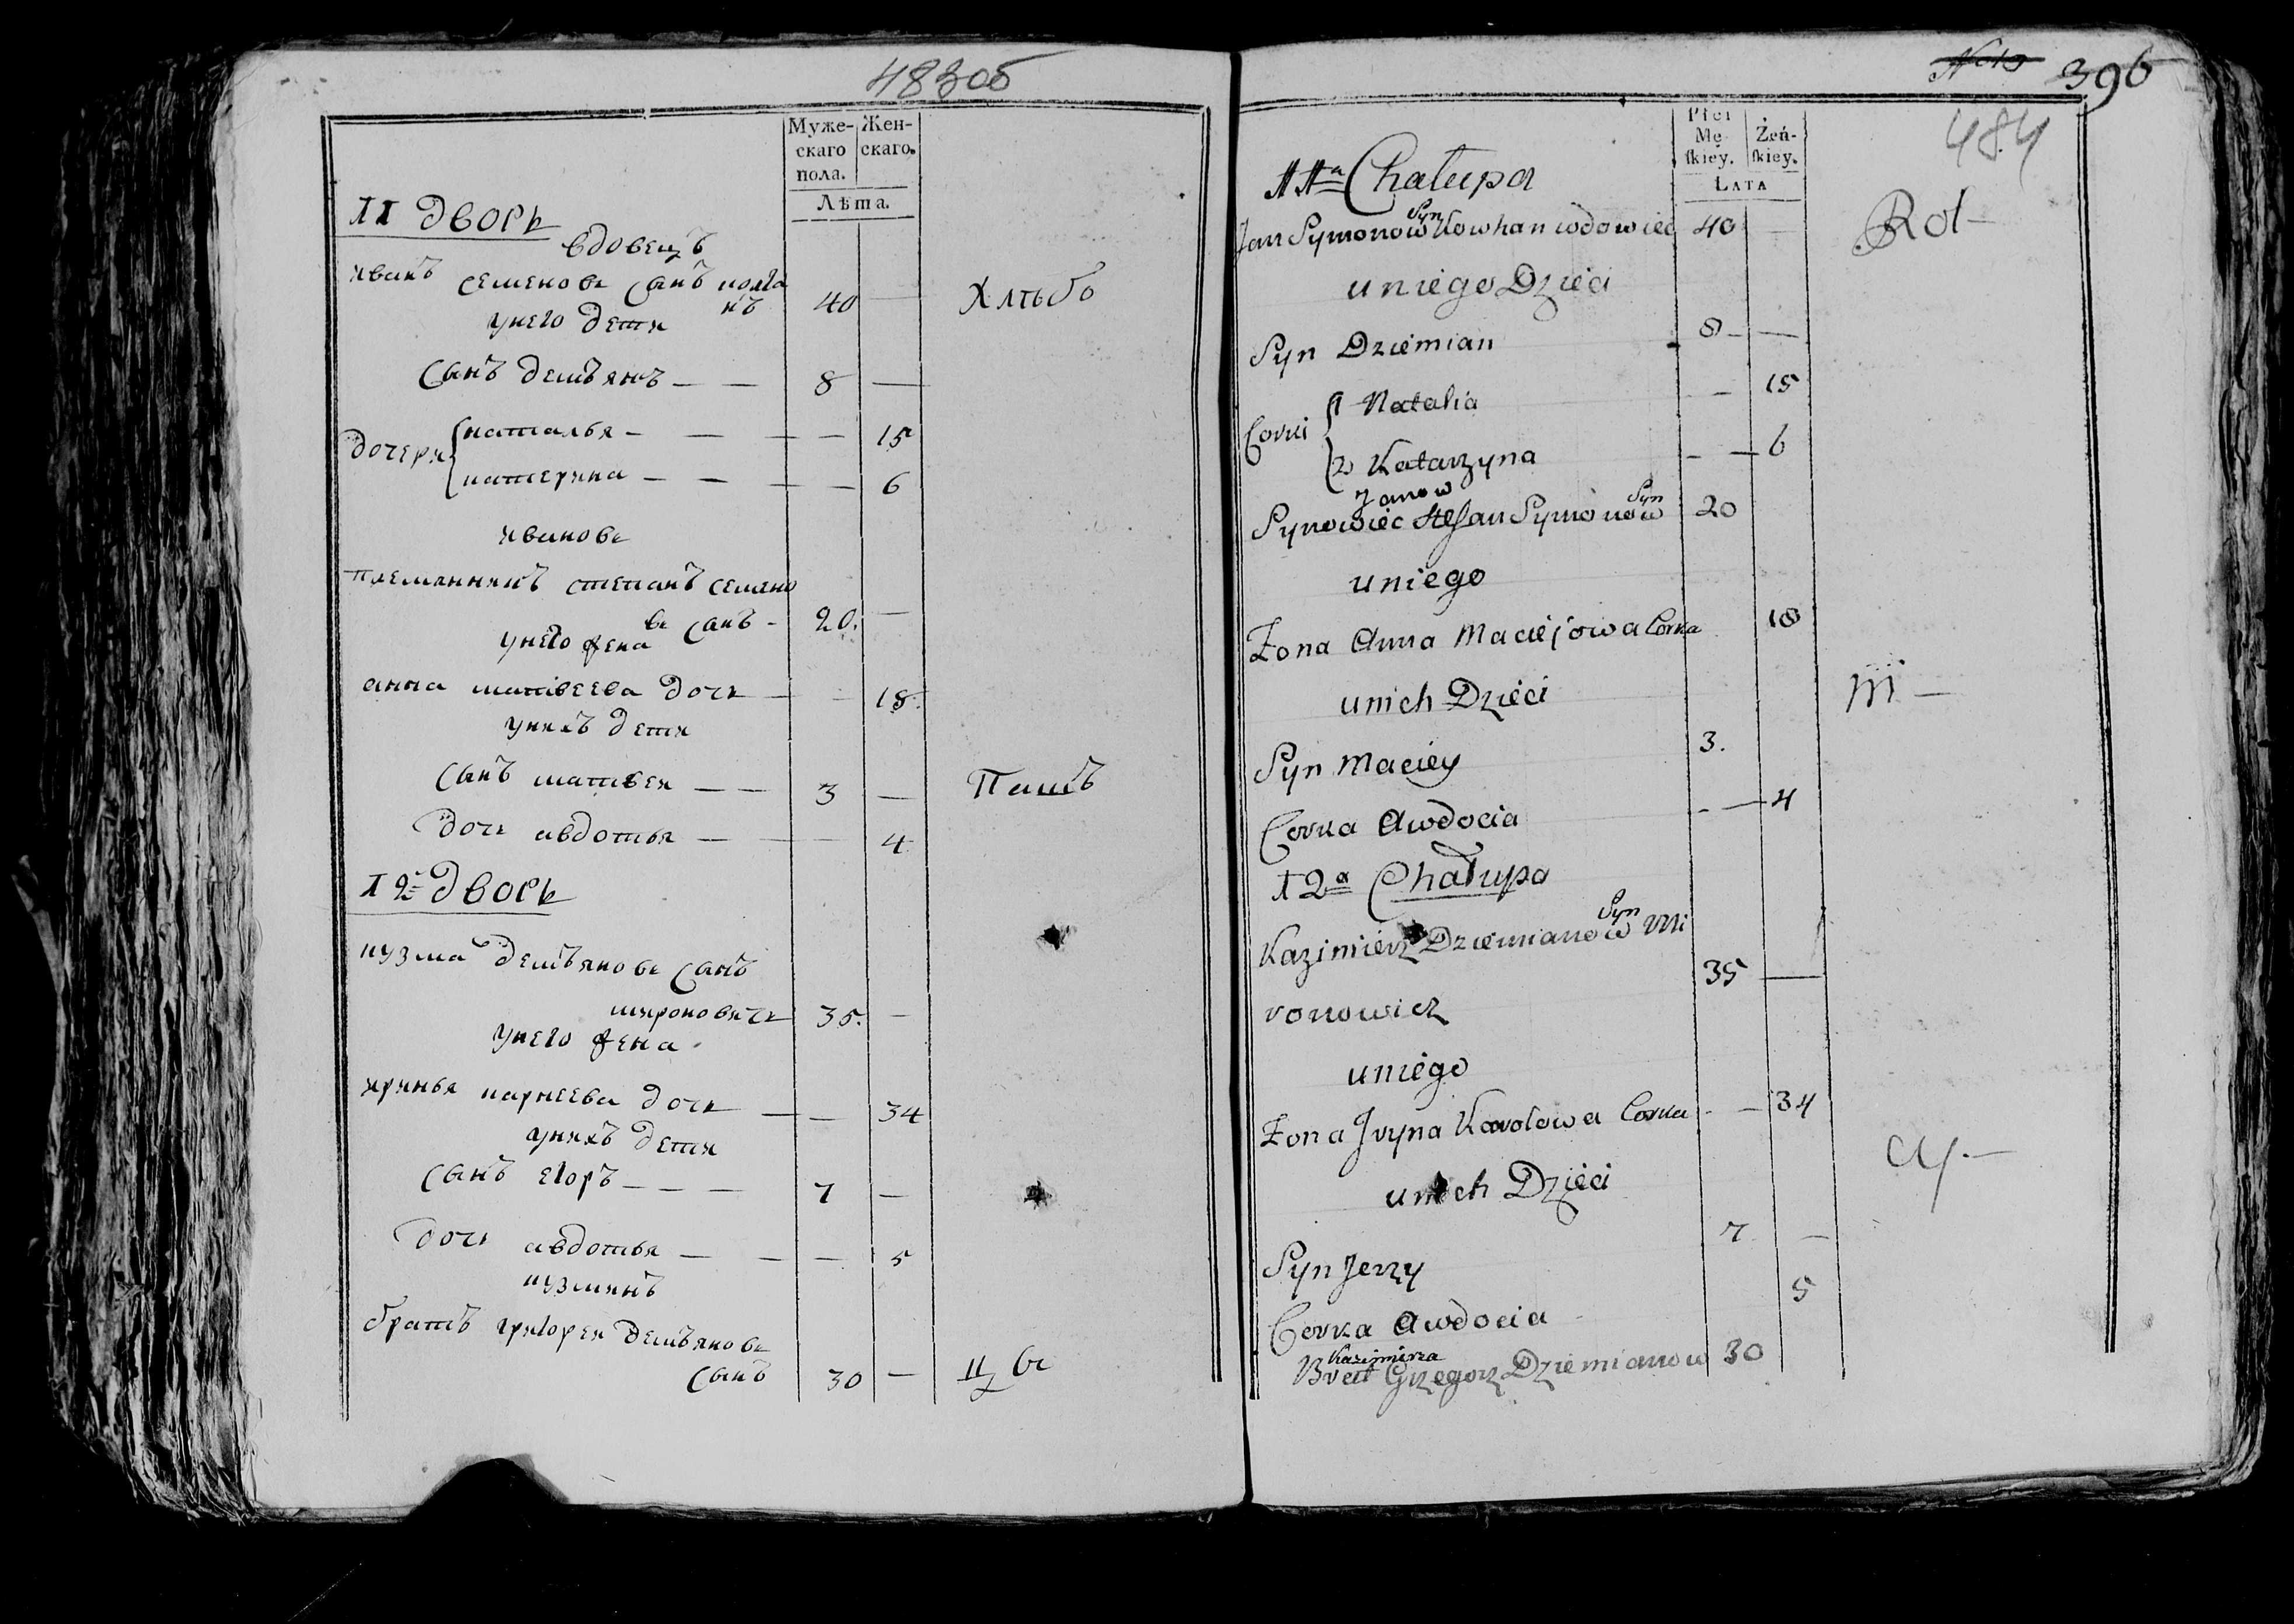 483об
Муже-
скаго
пола.
Жен-
скаго.
Лѣта.
11 дворъ
вдовецъ
иванъ семеновъ сынъ колга
нъ
40
Хлѣбо
у него дети
сынъ демьянъ — — 8 —
дочери
наталья — — — — 15
катерина — — — — 6
ивановъ
племянникъ степанъ семено
въ сынъ - 20. —
у него жена
анна матвеева дочь — — 18.
у нихъ дети
сынъ матвеи — — 3 — Пашъ
дочь авдотья — — — 4
12 дворъ
кузма демьяновъ сынъ
мироновичъ 35. —
у него жена
иринья карнеева дочь — — 34
у нихъ дети
сынъ егоръ — — — 7 —
дочь авдотья — — — 5
кузминъ
братъ григореи демьяновъ
сынъ 30 — Ц ВС
396
484
Płci
Mę-
ſkiey.
Żeń-
ſkiey.
LATA
11a Chałupa
Syn
Jan Symonow Kowhan wdowiec 40 — Rol—
uniego Dzieci
Syn Dziemian 8— —
Corki
1 Natalia — 15
2 Katarzyna - — 6
Janow
Syn
Synowiec Stefan Symonow 20
uniego
Żona Anna Maciejowa Corka 18
unich Dzieci
m —
Syn Maciey 3.
Corka Awdocia - — 4
12a Chałupa
Syn
Kazimierz Dziemianow Mi
35 —
ronowicz
uniego
Żona Jryna Karolowa Corka - — 34
Cy.—
unich Dzieci
Syn Jerzy 7 —
Corka Awdocia 5
Kazimierza
Brat Grzegorz Dziemianow 30